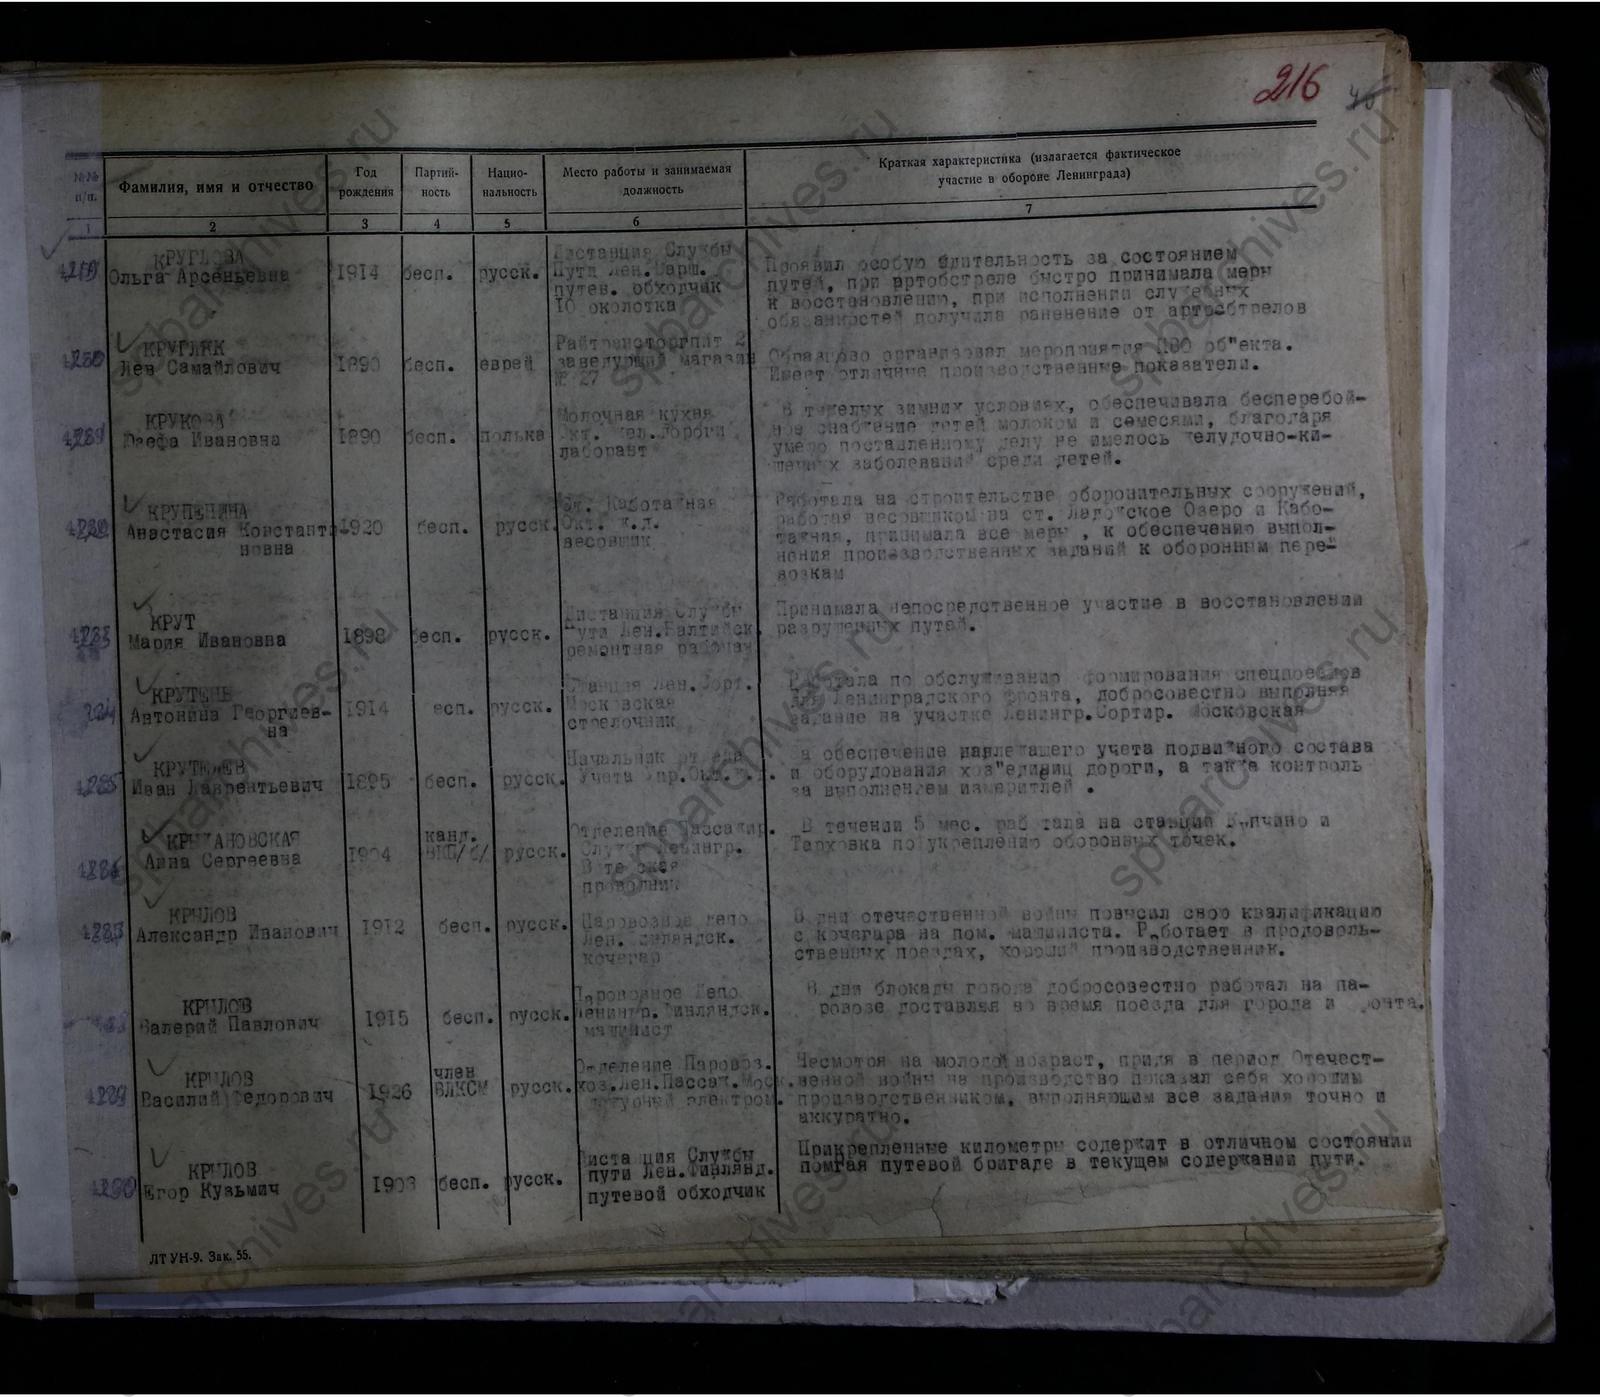 216
№№ п/п.
Фамилия, имя и отчество
Год рождения
Партий-ность
Нацио-нальность
Место работы и занимаемая должность
Краткая характеристика (излагается фактическое участие в обороне Ленинграда)
1 2 3 4 5 6 7
КРУГЛОВА
Ольга Арсеньевна
1914 бесп. русск.
Дистанция Службы
Пути Лен.Варш.
путев. обходчик
10 околотка
Проявил особую бдительность за состоянием
путей, при артобстреле быстро принимала меры
к восстановлению, при исполнении служебных
обязанностей получила ранение от артобстрелов
КРУГЛЯК
Лев Самайлович
1890 бесп. еврей
Райтрансторгпит 2
заведущий магазин
№ 27
Образцово организовал мероприятия ПВО об"екта.
Имеет отличные производственные показатели.
КРУКОВА
Юзефа Ивановна
1890 бесп. полька
Молочная кухня
Окт. жел.дороги
лаборант
В тяжелых зимних условиях, обеспечивала бесперебой-
ное снабжение детей молоком и смесями, благодаря
умело поставленному делу не имелось желудочно-ки-
шечных заболеваний среди детей.
КРУПЕНИНА
Анастасия Константи
новна
1920 бесп. русск.
Ст. Каботажная
Окт. ж.д.
весовщик
Работала на строительстве оборонительных сооружений,
работая весовщиком на ст. Ладожское Озеро и Кабо-
тажная, принимала все меры , к обеспечению выпол-
нения производственных заданий к оборонным пере-
возкам
КРУТ
Мария Ивановна
1898 бесп. русск.
Дистанция Службы
Пути Лен.Балтийск.
ремонтная рабочая
Принимала непосредственное участие в восстановлении
разрушенных путей.
КРУТЕНЬ
Антонина Георгиев-
на
1914 бесп. русск.
Станция Лен.Сорт.
Московская
стрелочник
Работала по обслуживанию формирования спецпоездов
для Ленинградского фронта, добросовестно выполняя
задание на участке Ленингр.Сортир. Московская
КРУТЕЛЕВ
Иван Лаврентьевич
1895 бесп. русск.
Начальник отдела
Учета Упр.Окт.ж.д.
За обеспечение надлежащего учета подвижного состава
и оборудования хоз"единиц дороги, а также контроль
за выполнением измеритлей .
КРЫЖАНОВСКАЯ
Анна Сергеевна
1904
канд.
ВКП/б/
русск.
Отделение Пассажир.
Служб Ленингр.
Витебская
проводник
В течении 5 мес. работала на станции Купчино и
Тарховка по укреплению оборонных точек.
КРЫЛОВ
Александр Иванович
1912 бесп. русск.
Паровозное депо
Лен. Финляндск.
кочегар
В дни отечественной войны повысил свою квалификацию
с кочегара на пом. машиниста. Работает в продоволь-
ственных поездах, хороший производственник.
КРЫЛОВ
Валерий Павлович
1915 бесп. русск.
Паровозное Депо
Ленингр. Финляндск.
машинист
В дни блокады города добросовестно работал на па-
ровозе доставляя во время поезда для города и фронта.
КРЫЛОВ
Василий Федорович
1926
член
ВЛКСМ
русск.
Отделение Паровоз.
хоз.Лен.Пассаж.Моск.
дежурный электром.
Несмотря на молодой возраст, придя в период Отечест-
венной войны на производство показал себя хорошим
производственником, выполняющим все задания точно и
аккуратно.
КРЫЛОВ
Егор Кузьмич
1903 бесп. русск.
Дистанция Службы
пути Лен.Финлянд.
путевой обходчик
Прикрепленные километры содержит в отличном состоянии
помгая путевой бригаде в текущем содержании пути.
ЛТ УН-9. Зак. 55.
spbarchives.ru